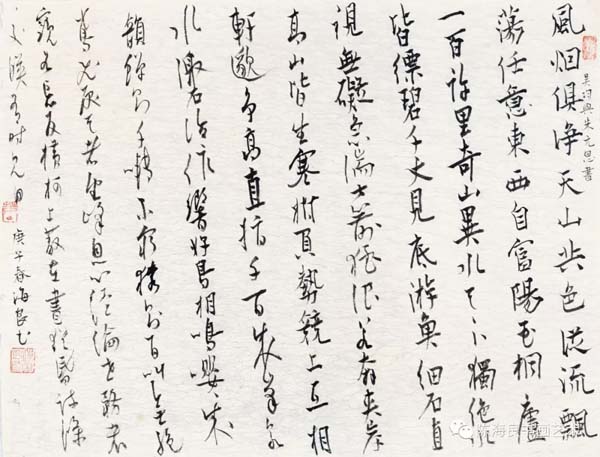 風烟俱淨天山共色從流飄
吴均與朱元思書
蕩任意東西自富陽至桐廬
一百許里奇山異水天下獨絕水
皆縹碧千丈見底游魚細石直
視無礙急湍甚箭猛浪若奔夹岸
高山皆生寒樹負勢競上互相
軒邈争高直指千百成峰泉
水激石泠泠作響好鳥相鳴嚶嚶成
韻蟬則千轉不窮猿則百叫無絕
鳶飛戾天者望峰息心經綸世務者
窺谷忘反橫柯上蔽在晝猶昏疏條
交映有時見日
庚子春海良书
陈海良书画艺